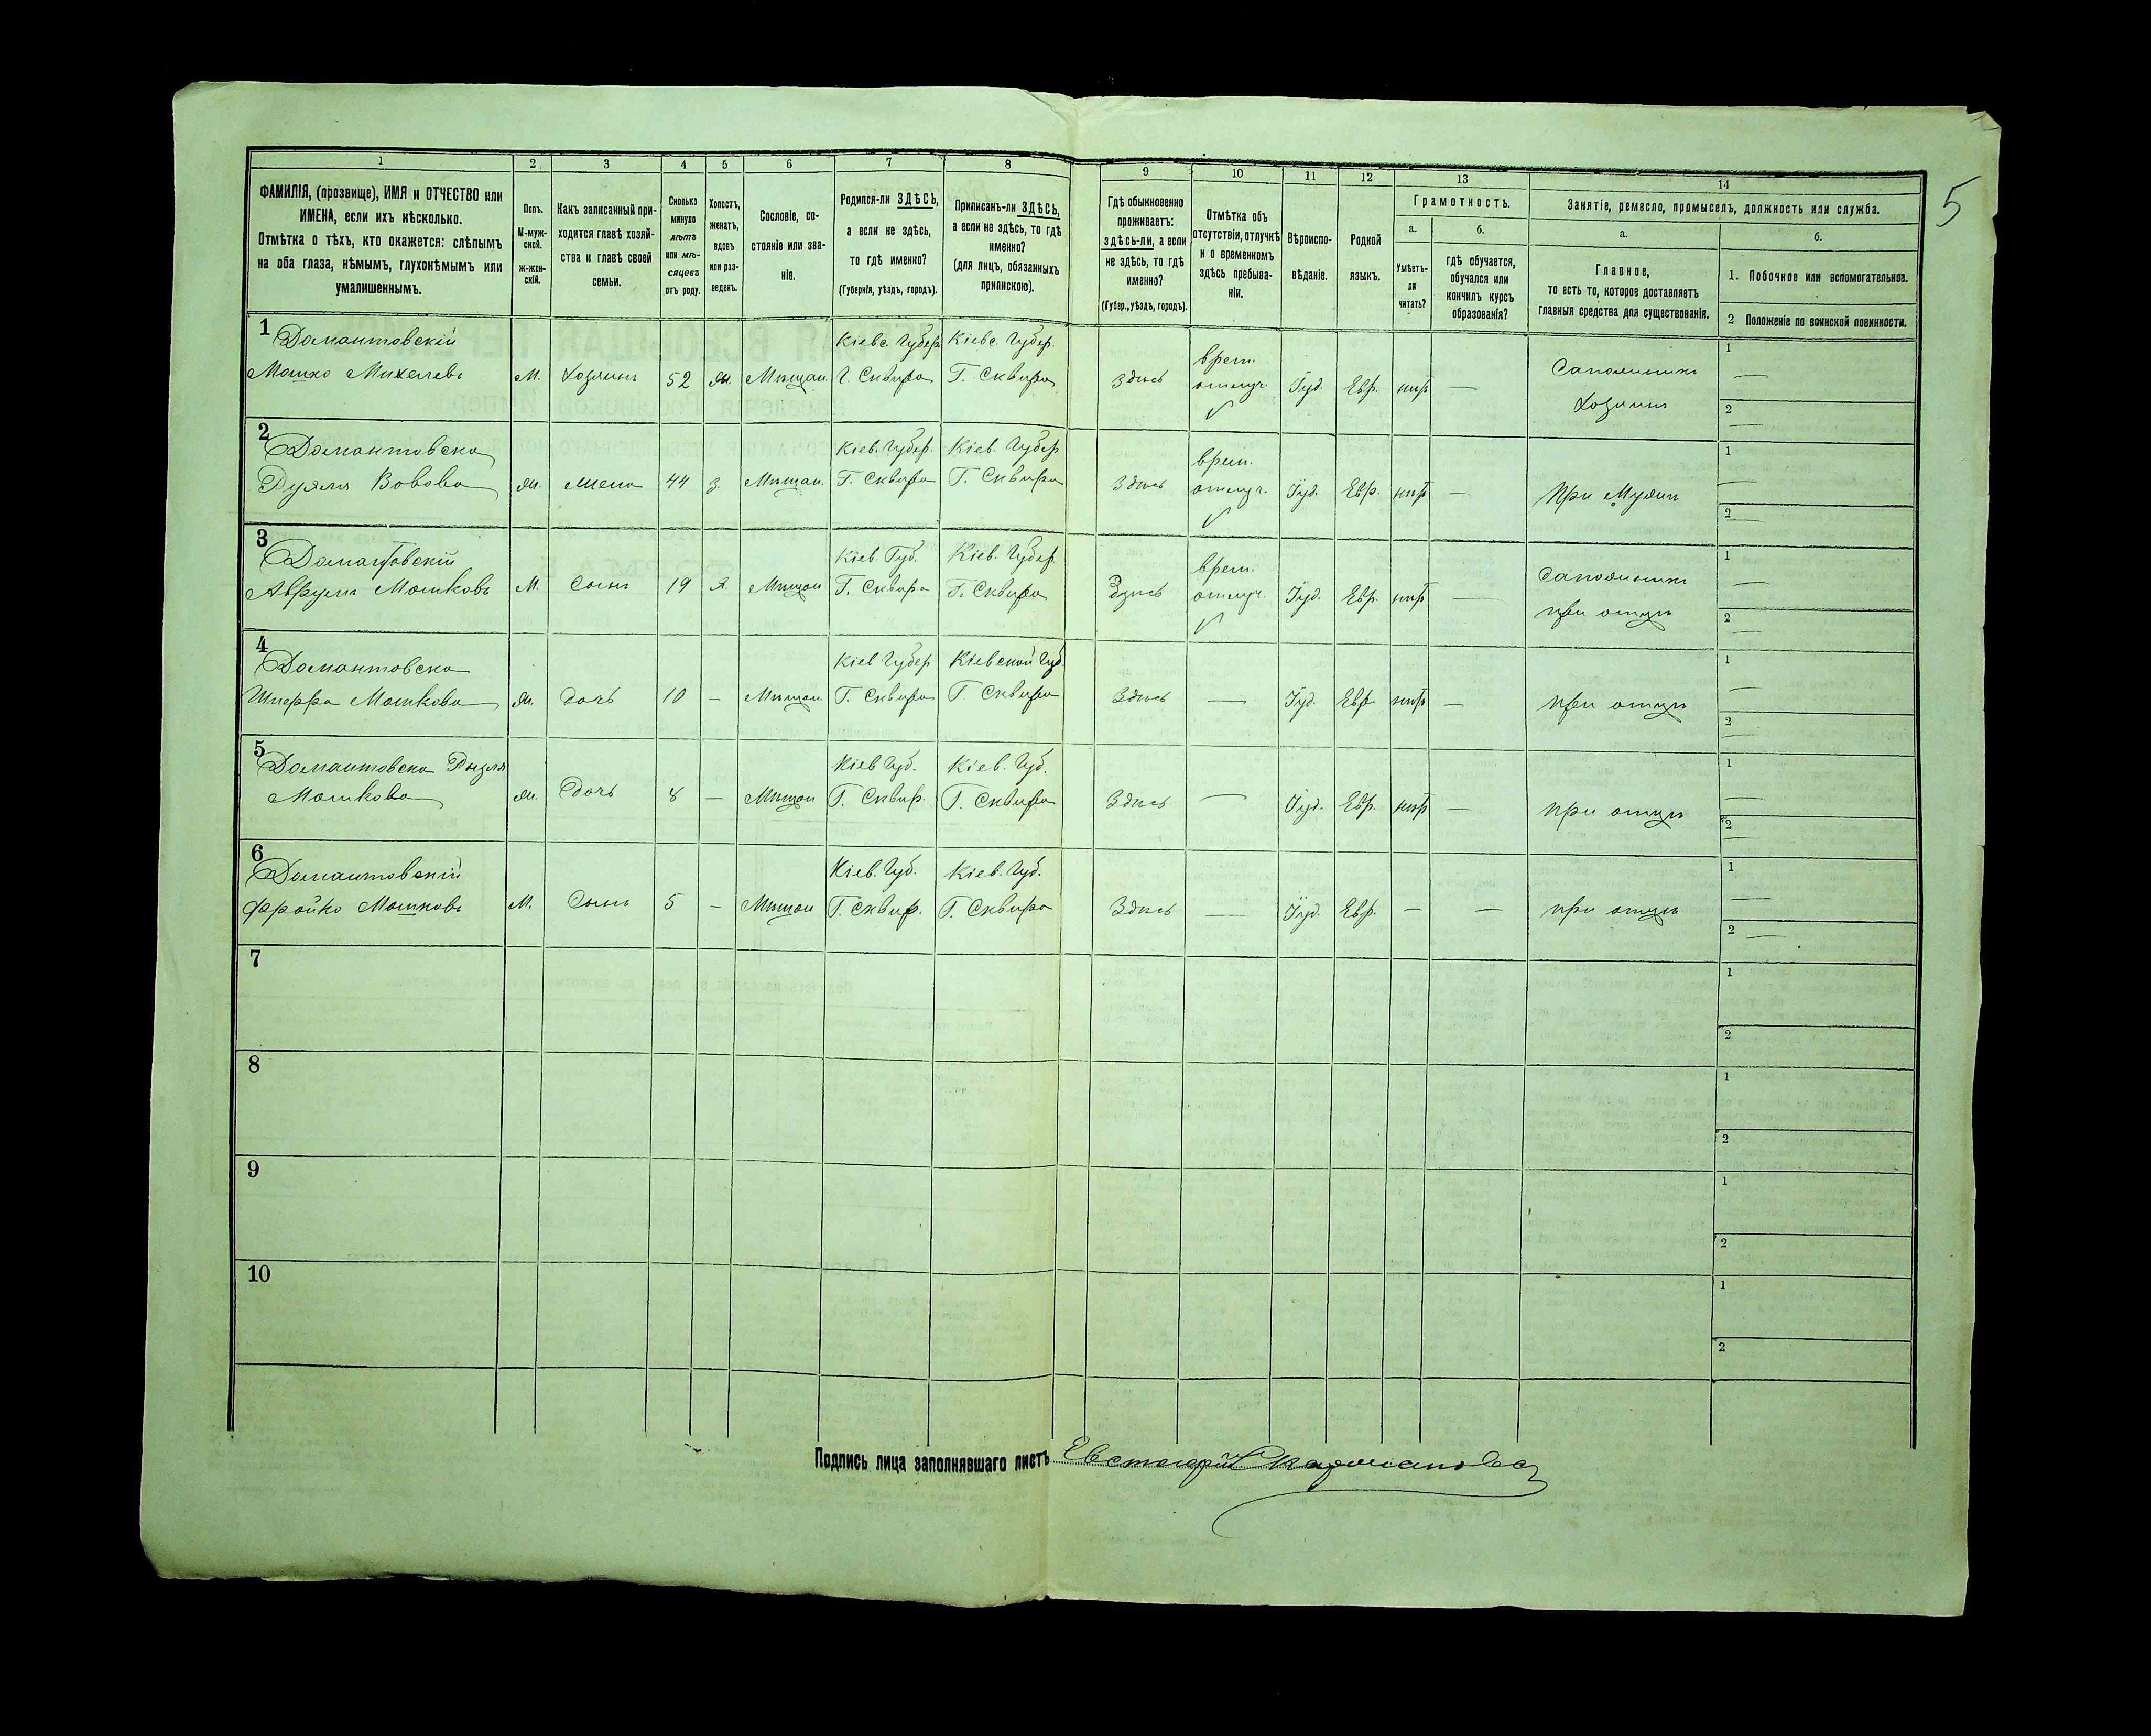 5
1
2
3
4
5
6
7
8
9
10
11
12
13
14
ФАМИЛІЯ, (прозвище), ИМЯ и ОТЧЕСТВО или
ИМЕНА, если ихъ нѣсколько.
Отмѣтка о тѣхъ, кто окажется: слѣпымъ
на оба глаза, нѣмымъ, глухонѣмымъ или
умалишеннымъ.
Полъ.
М-муж-
ской.
ж-жен-
скій.
Какъ записанный при-
ходится главѣ хозяй-
ства и главѣ своей
семьи.
Сколько
минуло
лѣтъ
или мѣ-
сяцевъ
отъ роду.
Холостъ,
женатъ,
вдовъ
или раз-
веденъ.
Сословіе, со-
стояніе или зва-
ніе.
Родился-ли ЗДѢСЬ,
а если не здѣсь,
то гдѣ именно?
(Губернія, уѣздъ, городъ).
Приписанъ-ли ЗДѢСЬ,
а если не здѣсь, то гдѣ
именно?
(для лицъ, обязанныхъ
припискою).
Гдѣ обыкновенно
проживаетъ:
здѣсь-ли, а если
не здѣсь, то гдѣ
именно?
(Губер., уѣздъ, городъ).
Отмѣтка объ
отсутствіи, отлучкѣ
и о временномъ
здѣсь пребыва-
ніи.
Вѣроиспо-
вѣданіе.
Родной
языкъ.
Грамотность.
а.
Умѣетъ-
ли
читать?
б.
гдѣ обучается,
обучался или
кончилъ курсъ
образованія?
Занятіе, ремесло, промыселъ, должность или служба.
а.
Главное,
то есть то, которое доставляетъ
главныя средства для существованія.
б.
1. Побочное или вспомогательное.
2 Положеніе по воинской повинности.
1 Домантовскій Кіевс. Губер. Кіевс. Губер. врем. Сапожникъ 1
Мошко Михелевъ М. Хозяинъ 52 ж. Мѣщан. Г. Сквира Г. Сквира Здѣсь отлуч. Іуд. Евр. нѣтъ — Хозяинъ 2
2 Домантовска Кіев. Губер. Кіев. Губер врем. 1
Вовова ж. Жена 44 з Мѣщан. Г. Сквира Г. Сквира Здѣсь отлуч. Іуд. Евр. нѣтъ — при Мужѣ 2
3 Домантовскій Кіев Губ. Кіев. Губер. врем. Сапожникъ 1
Аврумъ Мошковъ М. Сынъ 19 Мѣщан Г. Сквира Г. Сквира Здѣсь отлуч. Іуд. Евр. нѣтъ — при отцѣ 2
4 Домантовска Кіев Губер Кіевской Губ. 1
Мошкова ж. дочь 10 — Мѣщан. Г. Сквира Г. Сквира Здѣсь — Іуд. Евр нѣтъ — при отцѣ 2
5 Домантовска Рызля Кіев Губ. Кіев. Губ. 1
Мошкова ж. дочь 8 — Мѣщан Г. Сквир. Г. Сквира Здѣсь — Іуд. Евр. нѣтъ — при отцѣ 2
6 Домантовскій Кіев. Губ. Кіев. Губ. 1
Фройко Мошковъ М. Сынъ 5 — Мѣщан Г. Сквир. Г. Сквира Здѣсь — Іуд. Евр. — — при отцѣ 2
7 1
2
8 1
2
9 1
2
10 1
2
Подпись лица заполнявшаго листъ